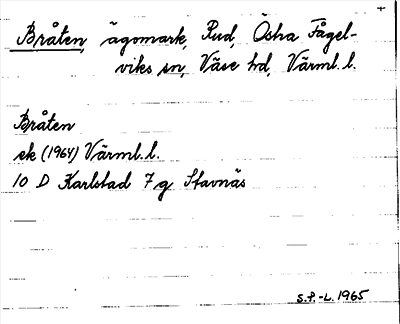 +
Bråten, ägomark, Rud, Östra Fågel-
viks sn, Väse hd, Värml. l.
Bråten
ek (1964) Värml. l.
10 D Karlstad 7 g Stavnäs
S.P.-L. 1965